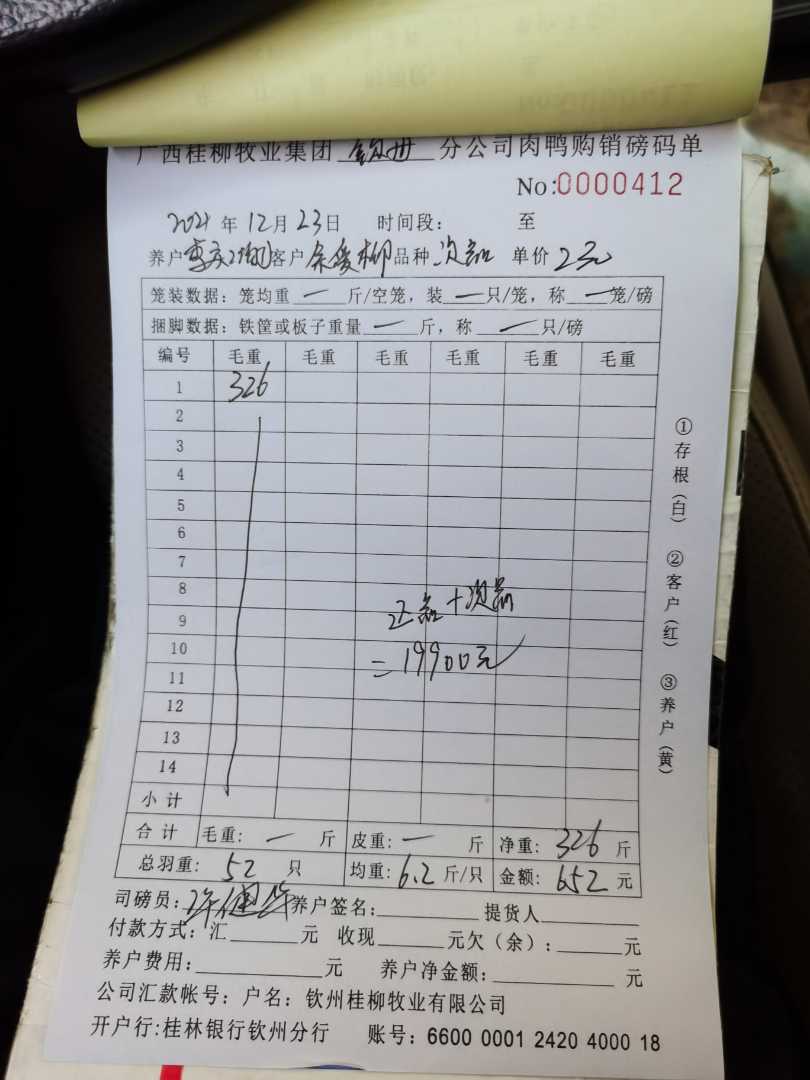 广西桂柳牧业集团 钦州 分公司肉鸭购销磅码单
No:0000412
2021 年 12 月 23 日 时间段: 至
养户 客户 余爱柳 品种 次品 单价 2元
笼装数据: 笼均重 一 斤/空笼, 装 一 只/笼, 称 一 笼/磅
捆脚数据: 铁筐或板子重量 一 斤, 称 一 只/磅
编号 毛重 毛重 毛重 毛重 毛重 毛重
1 326
2
3
4
5
6
7
8
9
10
11
12
13
14
正品+次品
=19900元
小计
合计 毛重: 一 斤 皮重: 一 斤 净重: 326 斤
总羽重: 52 只 均重: 6.2 斤/只 金额: 652 元
司磅员: 养户签名: 提货人
付款方式: 汇 元 收现 元欠(余): 元
养户费用: 元 养户净金额: 元
公司汇款帐号: 户名: 钦州桂柳牧业有限公司
开户行:桂林银行钦州分行 账号: 6600 0001 2420 4000 18
①存根(白) ②客户(红) ③养户(黄)